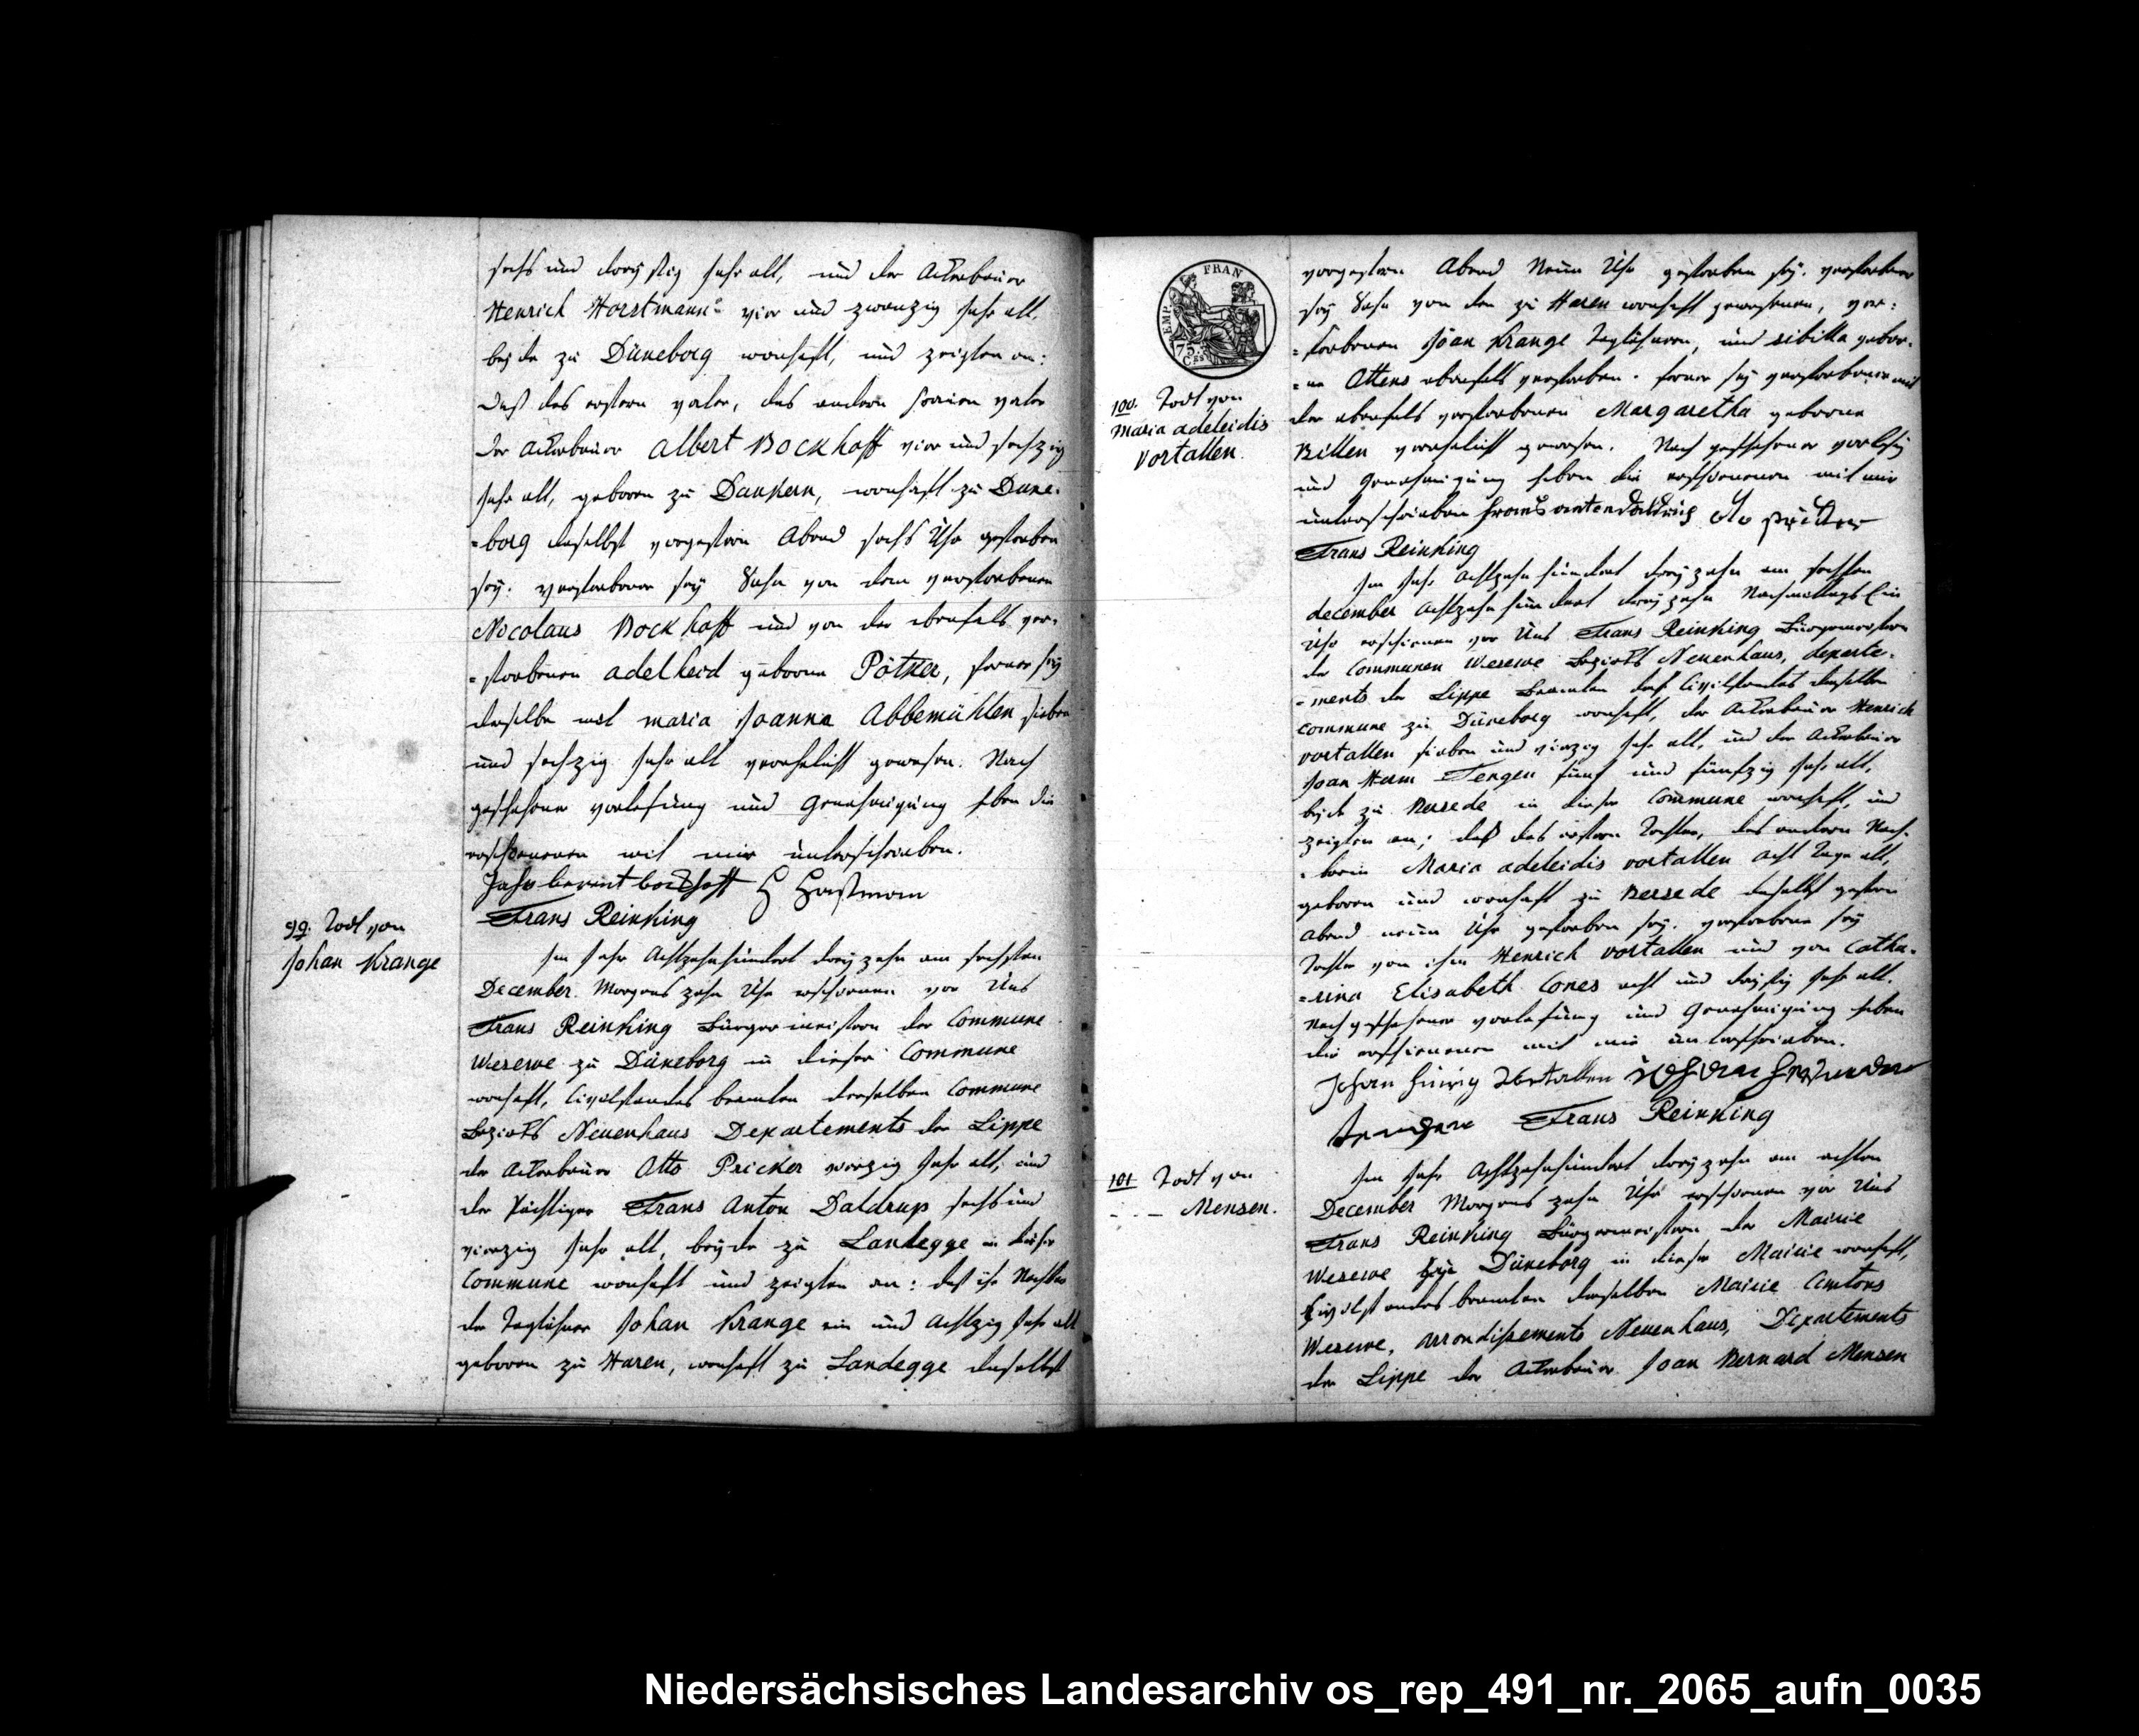 sechs und dreyßig Jahr alt, und der Ackerbauer
Henrich Horstmann vier und zwanzig Jahr alt,
beÿde zu Düneborg wonhaft, und zeigten an:
Daß des erstern vater, des andern vater
der Ackerbauer Albert Bockhoff vier und sechzig
Jahr alt, geboren zu Dankern, wonhaft zu Dune-
=borg daselbst vorgestern Abend sechs Uhr gestorben
seÿ. verstorbener seÿ Sohn von dem verstorbenen
Nicolaus Bockhoff und von der ebenfals ver-
=storbenen adelheid geborne Pötker, ferner seÿ
derselbe mit maria Joanna Abbemühlen sieben
und sechzig Jahr alt verehelicht gewesen. Nach
geschehener vorlesung und Genehmigung haben die
erschienenen mit mir unterschrieben.
Jahn berent bockhoff H Horstmann
Frans Reinking
99. Todt von
Johan Krange
Im Jahr Achtzehnhundert dreyzehn am sechsten
December Morgens zehn Uhr erschienen vor Uns
Frans Reinking Bürgermeistern der Commune
Wesewe zu Düneborg in dieser Commune
wonhaft, Civilstandes beamten derselben Commune
Bezirks Neuenhaus Departements der Lippe
der Ackerbauer Otto Pricker vierzig Jahr alt, und
der Pächtiger Frans Anton Daldrup sechs und
vierzig Jahr alt, beÿde zu Landegge in dieser
Commune wonhaft und zeigten an: daß ihr Nachbar
der Taglöhner Johan Krange ein und Achtzig Jahr alt
geboren zu Haren, wonhaft zu Landegge daselbst
EMP FRAN
75
CES
vorgestern Abend Neun Uhr gestorben seÿ. verstorbener
seÿ Sohn von den zu Haren wonhaft gewesenen, ver:
=storbenen Joan Krange Taglöhnern, und sibilla gebor-
=ne Ottens ebenfals verstorben. ferner seÿ verstorbener mit
der ebenfals verstorbenen Margaretha geborne
Billen verehelicht gewesen. Nach geschehener vorlesung
und Genehmigung haben die erschienenen mit mir
unterschrieben Frans Anton Daldrup Otto Pricker
Frans Reinking
100. Todt von
Maria adeleidis
vortallen.
Im Jahr Achtzehnhundert dreyzehn am sechsten
december Achtzehnhundert dreyzehn Nachmittags Ein
Uhr erschienen vor Uns Frans Reinking Bürgermeistern
der Communen Wesewe Bezirks Neuenhaus, departe-
=ments der Lippe Beamten des Civilstandes derselben
commune zu Düneborg wonhaft, der Ackerbauer Henrich
vortallen sieben und vierzig Jahr alt, und der Ackerbauer
Joan Herm Tengen fünf und fünfzig Jahr alt,
beÿde zu Bersede in dieser Commune wonhaft, und
zeigten an; daß des erstern Tochter, des andern Nach-
=barin Maria adeleidis vortallen acht Tage alt,
geboren und wonhaft zu Bersede daselbst gestern
Abend neun Uhr gestorben seÿ. verstorbene seÿ
Tochter von ihm Henrich vortallen und von Catha-
=rina Elisabeth Cones acht und dreyßig Jahr alt.
Nach geschehener vorlesung und Genehmigung haben
die erschienenen mit mir unterschrieben.
Johan Hinrig Vortallen
Frans Reinking
101 Todt von
- - Mensen.
Im Jahr Achtzehnhundert dreyzehn am achten
December Morgens zehn Uhr erschienen vor Uns
Frans Reinking Bürgermeistern der Mairie
Wesewe zu Düneborg in dieser Mairie wonhaft,
Civilstandes beamten derselben Mairie Cantons
Wesewe, arrondissements Neuenhaus, Departements
der Lippe der Ackerbauer Joan Bernard Mensen
Niedersächsisches Landesarchiv os_rep_491_nr._2065_aufn_0035